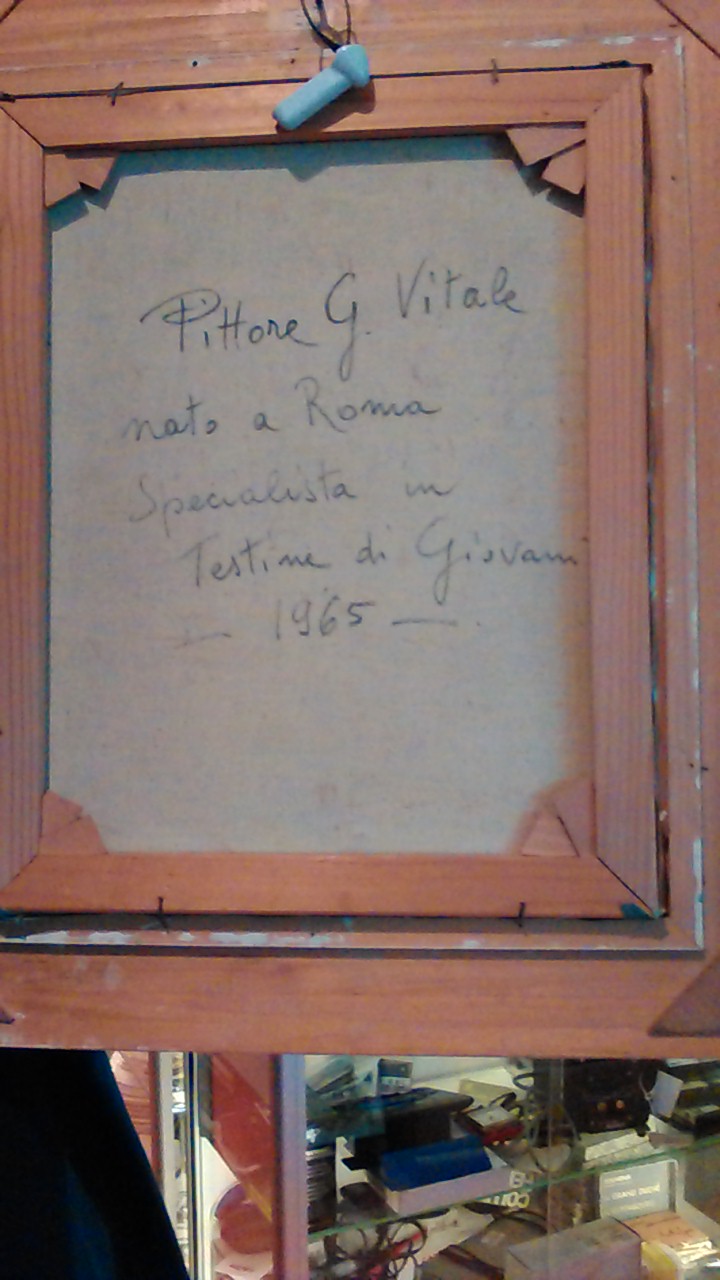 Pittore G. Vitale
nato a Roma
Specialista in
Testine di Giovani
— 1965 —.